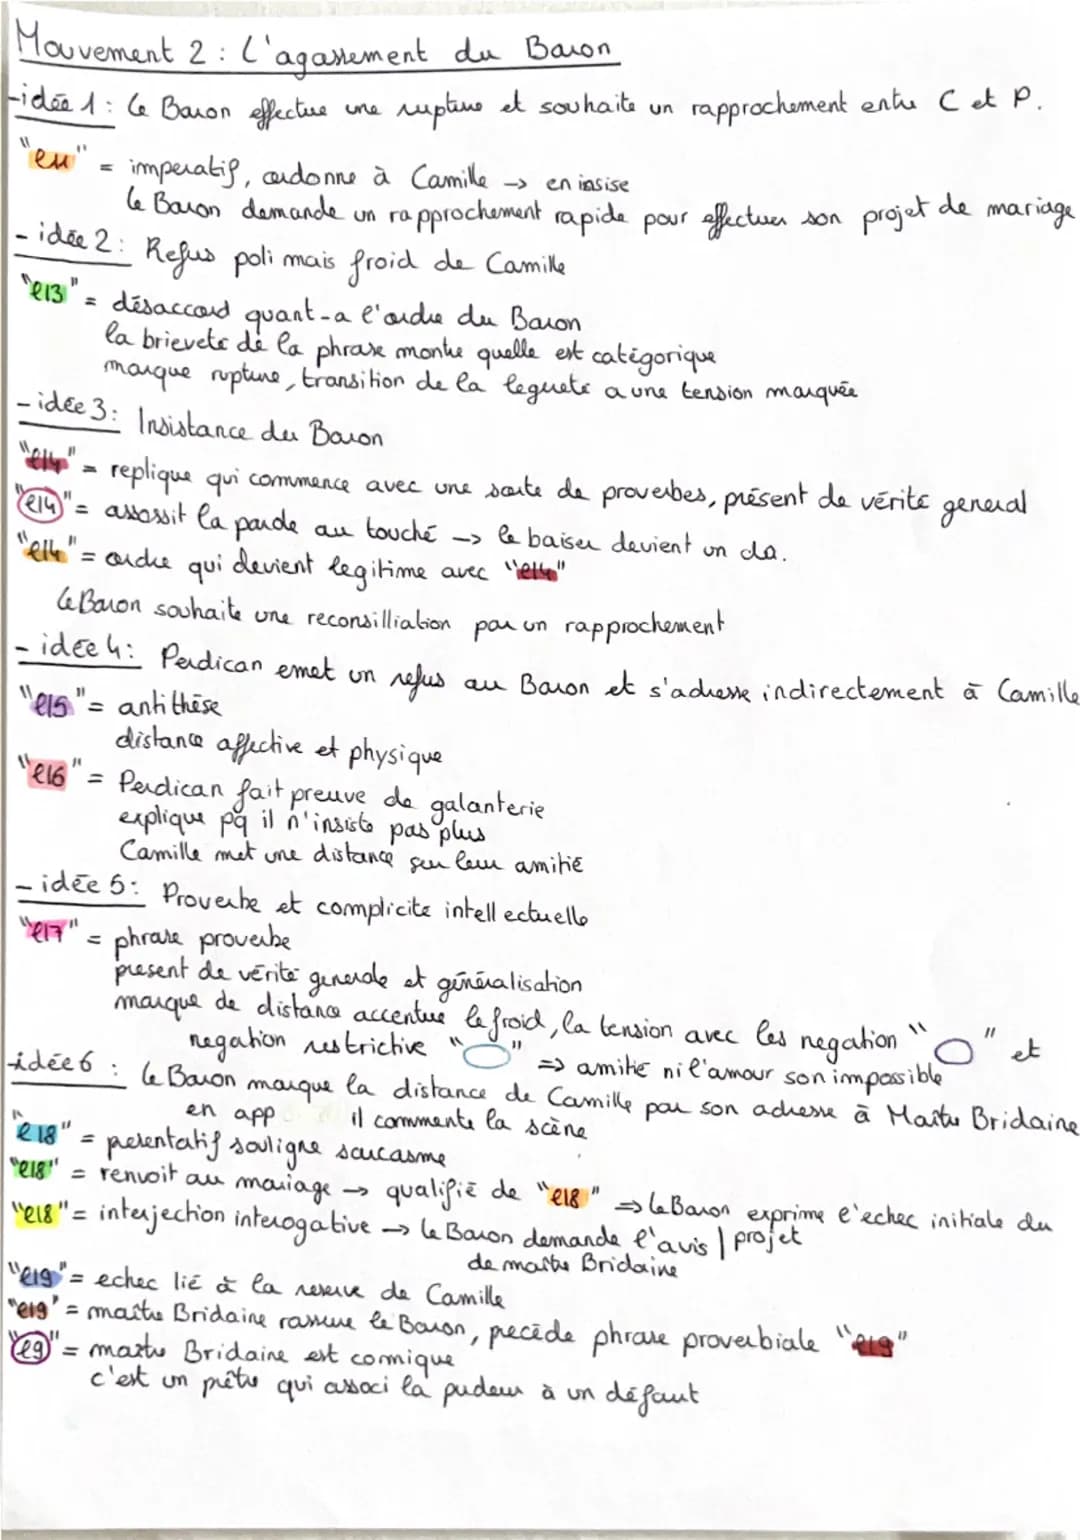 Mouvement 2 : L'agassement du Baron
-idée 1 : Le Baron effectue une rupture et souhaite un rapprochement entre C et P.
"l11" = imperatif, ordonne à Camille → en insise
Le Baron demande un rapprochement rapide pour effectuer son projet de mariage
- idée 2 : Refus poli mais froid de Camille
"l13" = désaccord quant-a l'ordre du Baron
la brieveté de la phrase montre quelle est catégorique
marque rupture, transition de la legereté a une tension marquée
- idée 3 : Insistance du Baron
"l14" = replique qui commence avec une sorte de proverbes, présent de vérité general
"l14" = assossit la parole au touché → le baiser devient un da.
"l14" = ordre qui devient legitime avec "l14"
Le Baron souhaite une reconsilliation par un rapprochement
- idée 4 : Perdican emet un refus au Baron et s'adresse indirectement à Camille
"l15" = antithèse
distance affective et physique
"l16" = Perdican fait preuve de galanterie
explique pq il n'insiste pas plus
Camille met une distance sur leur amitié
- idée 5 : Proverbe et complicite intellectuelle
"l17" = phrase proverbe
present de vérité generale et généralisation
marque de distance accentue le froid, la tension avec les negation " " et
negation restrictive " " ⇒ amitié ni l'amour son impossible
-idée 6 : Le Baron marque la distance de Camille par son adresse à Maître Bridaine
en app il commente la scène
"l18" = presentatif souligne sarcasme
"l18" = renvoit au mariage → qualifié de "l18" ⇒ Le Baron exprime l'echec initiale du
projet
"l18" = interjection interogative → Le Baron demande l'avis
de maître Bridaine
"l19" = echec lié à la reserve de Camille
"l19" = maître Bridaine rassure le Baron, precède phrase proverbiale "l19"
"l9" = maître Bridaine est comique
c'est un prêtre qui associ la pudeur à un défaut